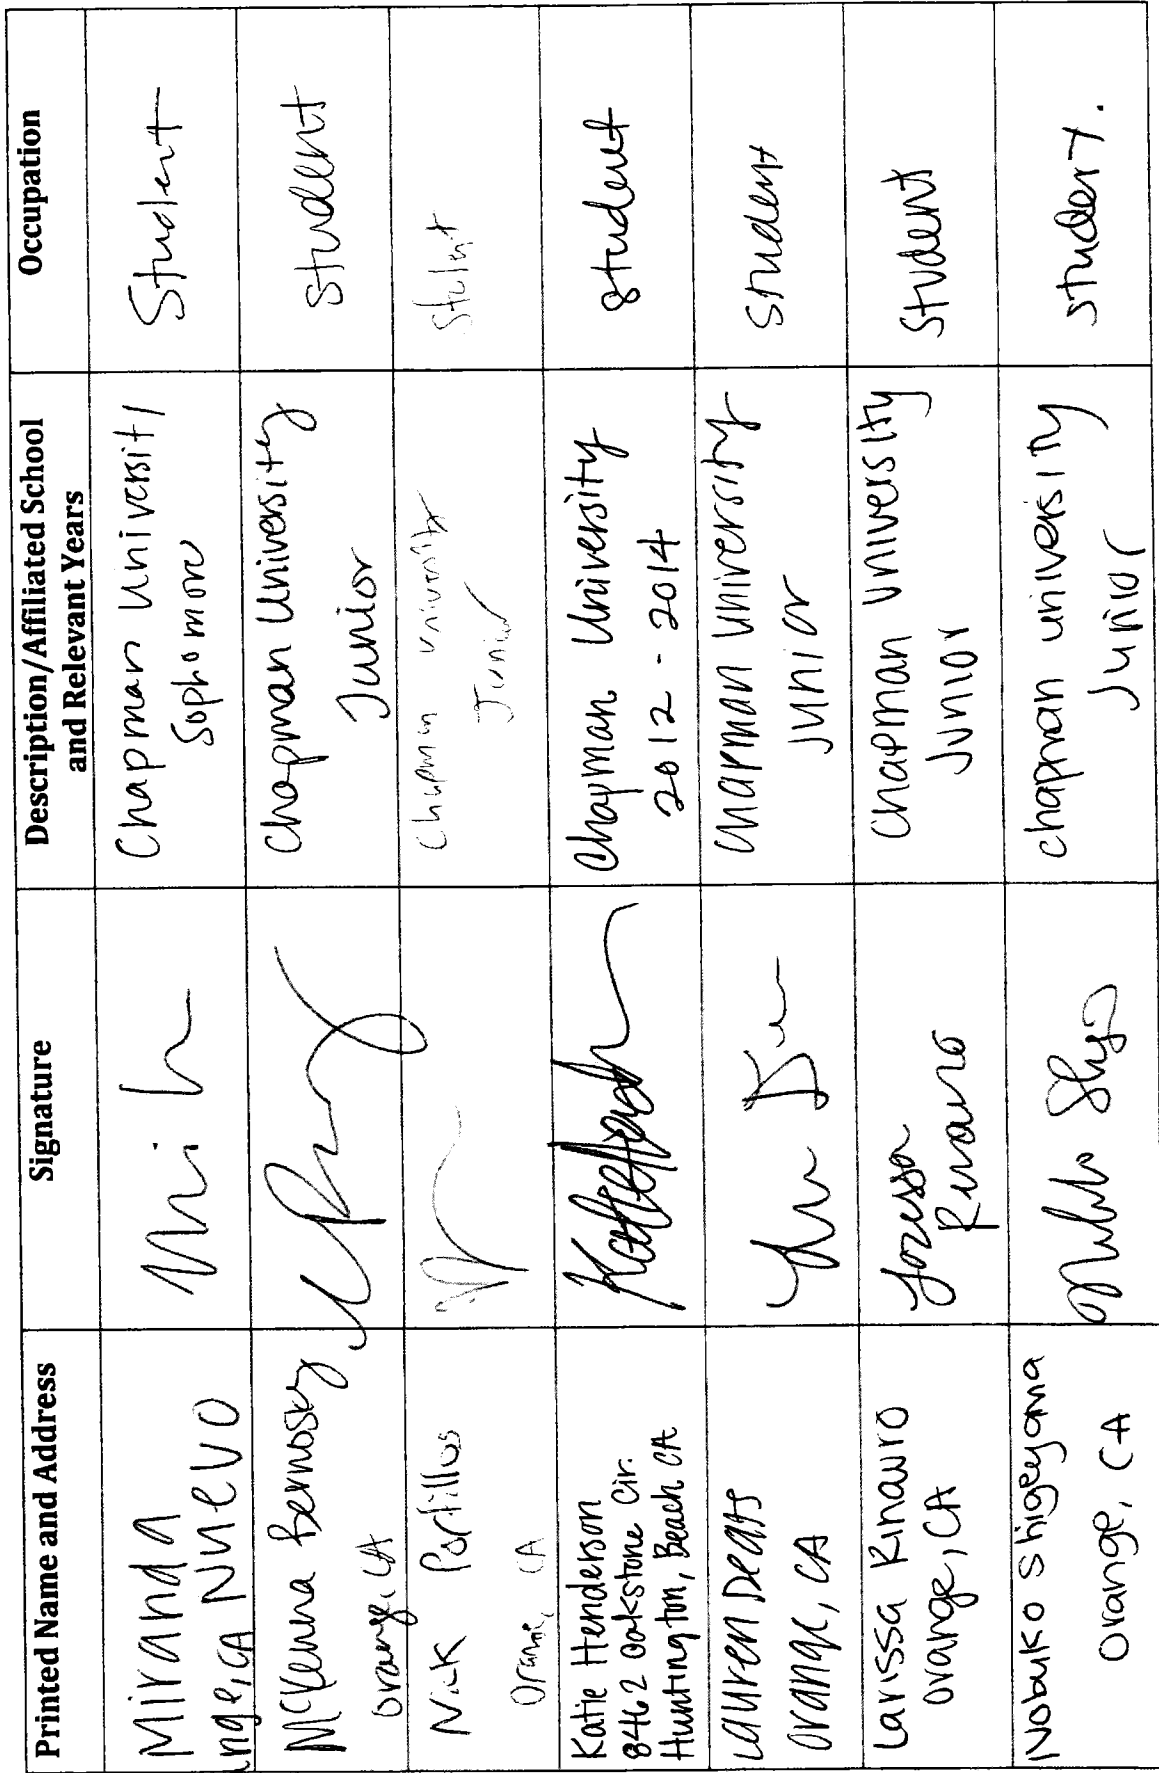 Printed Name and Address
Signature
Description/Affiliated School
and Relevant Years
Occupation
Miranda
Nuevo
nge, CA
Chapman University
Sophomore
Student
McKenna Bernosky
Orange, CA
Chapman University
Junior
Student
Nick Portillos
Orange, CA
Chapman University
Junior
Student
Katie Henderson
8462 Oakstone Cir.
Huntington, Beach CA
Chapman University
2012 - 2014
student
Lauren Deats
Orange, CA
Chapman University
Junior
Student
Larissa Rinauro
Orange, CA
Larissa
Rinauro
Chapman University
Junior
Student
Nobuko Shigeyama
Orange, CA
chapman university
Junior
student.